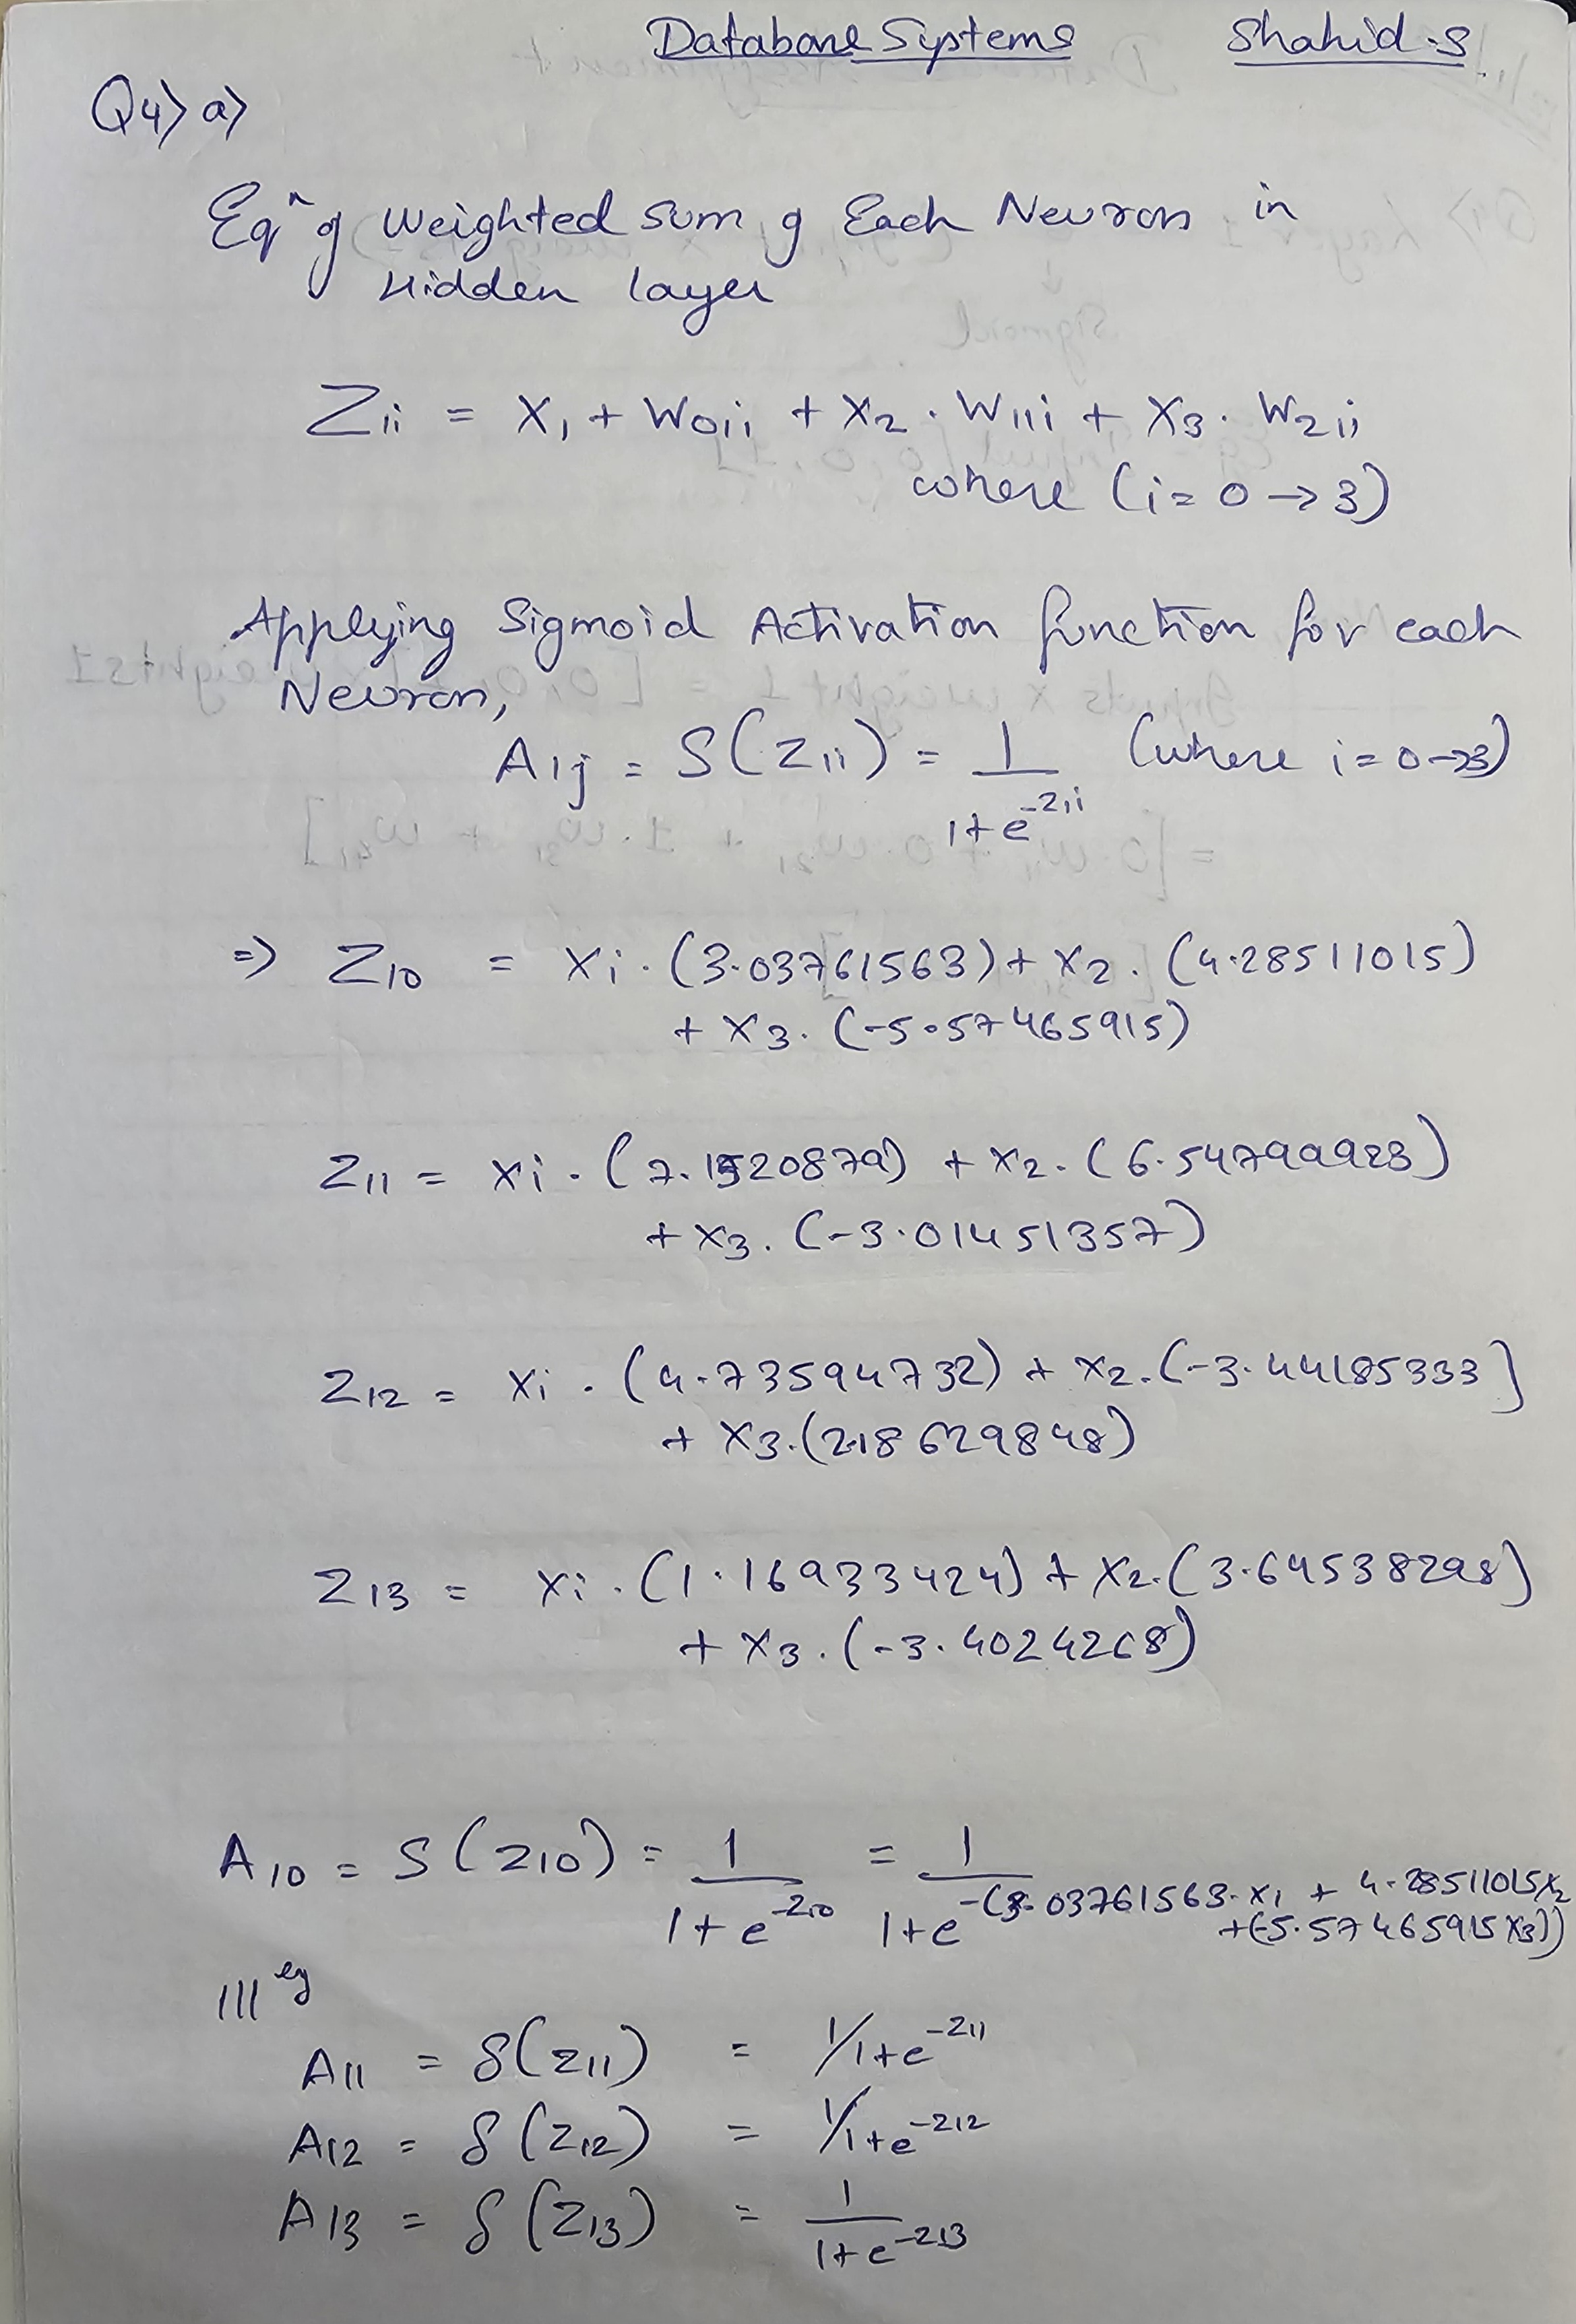 Database Systems Shahid.S
Q4) a)
Eqⁿ of weighted sum of Each Neuron in
Hidden layer
Z1i = X1 + W01i + X2 . W11i + X3 . W21i
where (i = 0 → 3)
Applying Sigmoid Activation function for each
Neuron,
A1j = S(Z1i) = 1 / 1+e^-Z1i (where i = 0→3)
⇒ Z10 = Xi . (3.03761563) + X2 . (4.28511015)
+ X3 . (-5.57465915)
Z11 = Xi . (7.1520879) + X2 . (6.54799923)
+ X3 . (-3.01451357)
Z12 = Xi . (4.73594732) + X2 . (-3.44185333]
+ X3 . (2.18629848)
Z13 = Xi . (1.16933424) + X2 . (3.64538298)
+ X3 . (-3.4024268)
A10 = S(Z10) = 1 / 1+e^-Z10 = 1 / 1+e^-(3.03761563.X1 + 4.28511015X2
+(-5.57465915X3))
|||ly
A11 = δ(Z11) = 1/1+e^-Z11
A12 = δ(Z12) = 1/1+e^-Z12
A13 = δ(Z13) = 1 / 1+e^-Z13